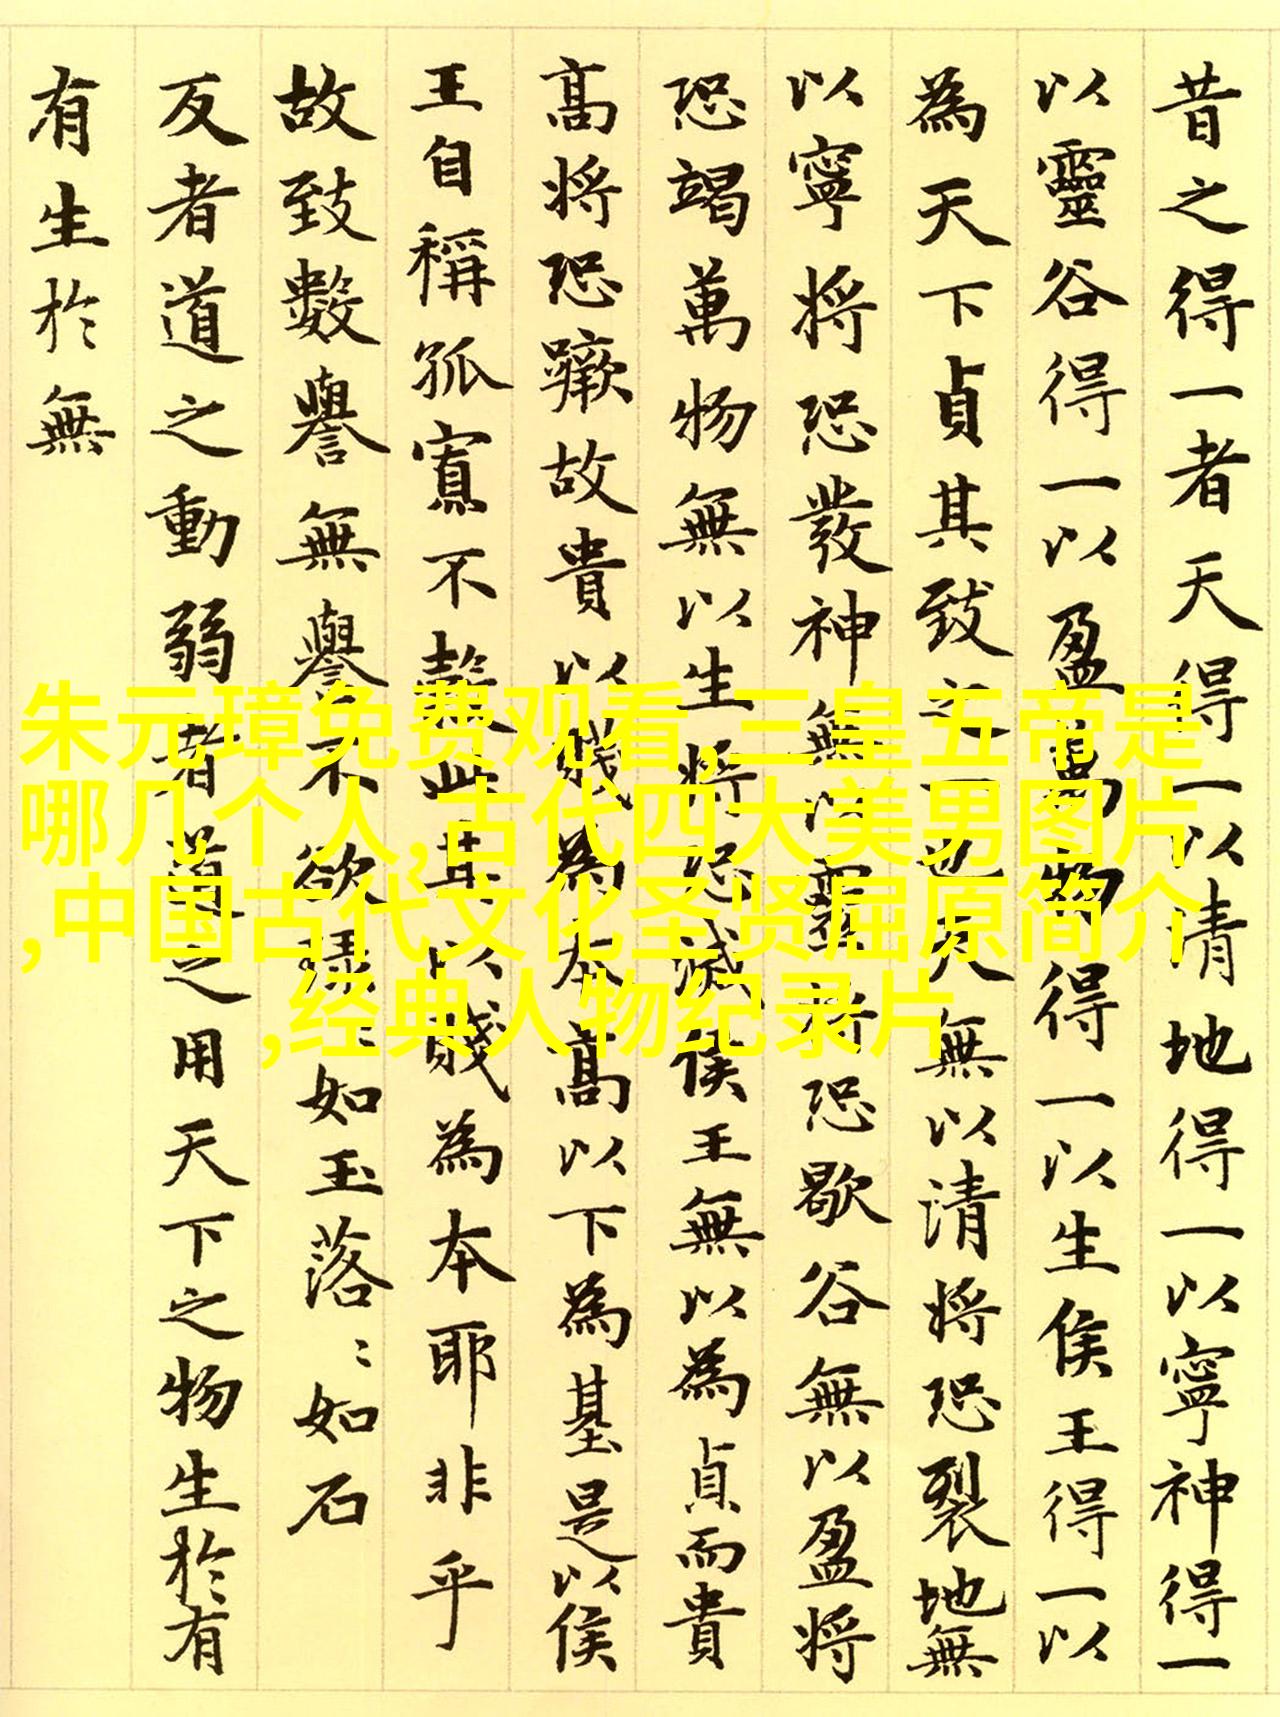 昔之得一者天得一以清地得一以寧神得一
以靈谷得一以盈萬物得一以生侯王得一以
為天下貞其致之一也天無以清將恐裂地無
以寧將恐發神無以靈將恐歇谷無以盈將
恐竭萬物無以生將恐滅侯王無以為貞而貴
高將恐蹶故貴以賤為本高以下為基是以侯
王自稱孤寡不穀此其以賤為本耶非乎
故致數譽無譽不欲琭〻如玉落〻如石
反者道之動弱者道之用天下之物生於有
有生於無
朱元璋免费观看,三皇五帝是
哪几个人,古代四大美男图片
,中国古代文化圣贤屈原简介
,经典人物纪录片